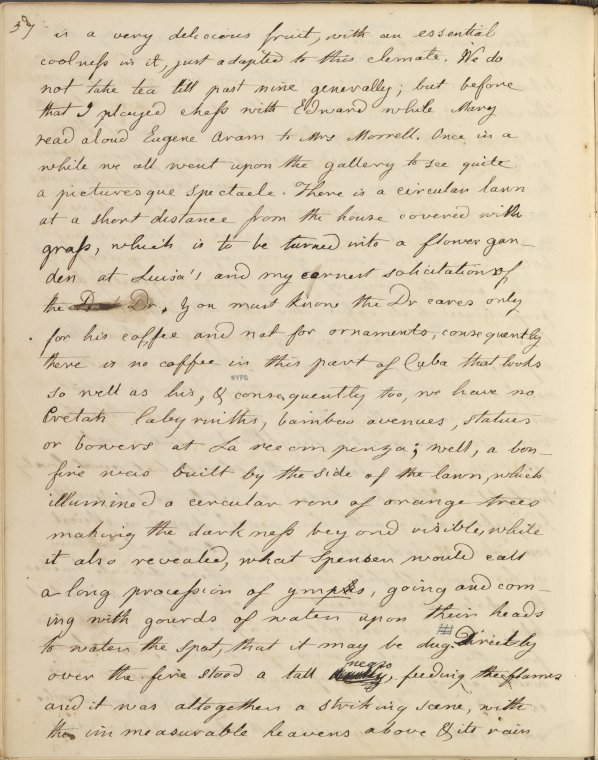 is a very delicious fruit, with an essential
coolness in it, just adapted to this climate. We do
not take tea till past nine generally; but before
that I played chess with Edward while Mary
read aloud Eugene Aram to Mrs Morrell. Once in a
while we all went upon the gallery to see quite
a picturesque spectacle. There is a circular lawn
at a short distance from the house covered with
grass, which is to be turned into a flower gar-
den at Luisa's and my earnest solicitations of
the Dr. You must know the Dr cares only
for his coffee and not for ornaments, consequently
there is no coffee in this part of Cuba that looks
NYPL
so well as his, & consequently too, we have no
Cretan labyrinths, bamboo avenues, statues
or bowers at La recompenza; well, a bon-
fire was built by the side of the lawn, which
illumined a circular row of orange trees
making the darkness beyond visible, while
it also revealed, what Spenser would call
a long procession of ymps, going and com-
ing with gourds of water upon their heads
to water the spot, that it may be dug. Directly
over the fire stood a tall negro, feeding the flames
and it was altogether a striking scene, with
the immeasurable heavens above & its rain